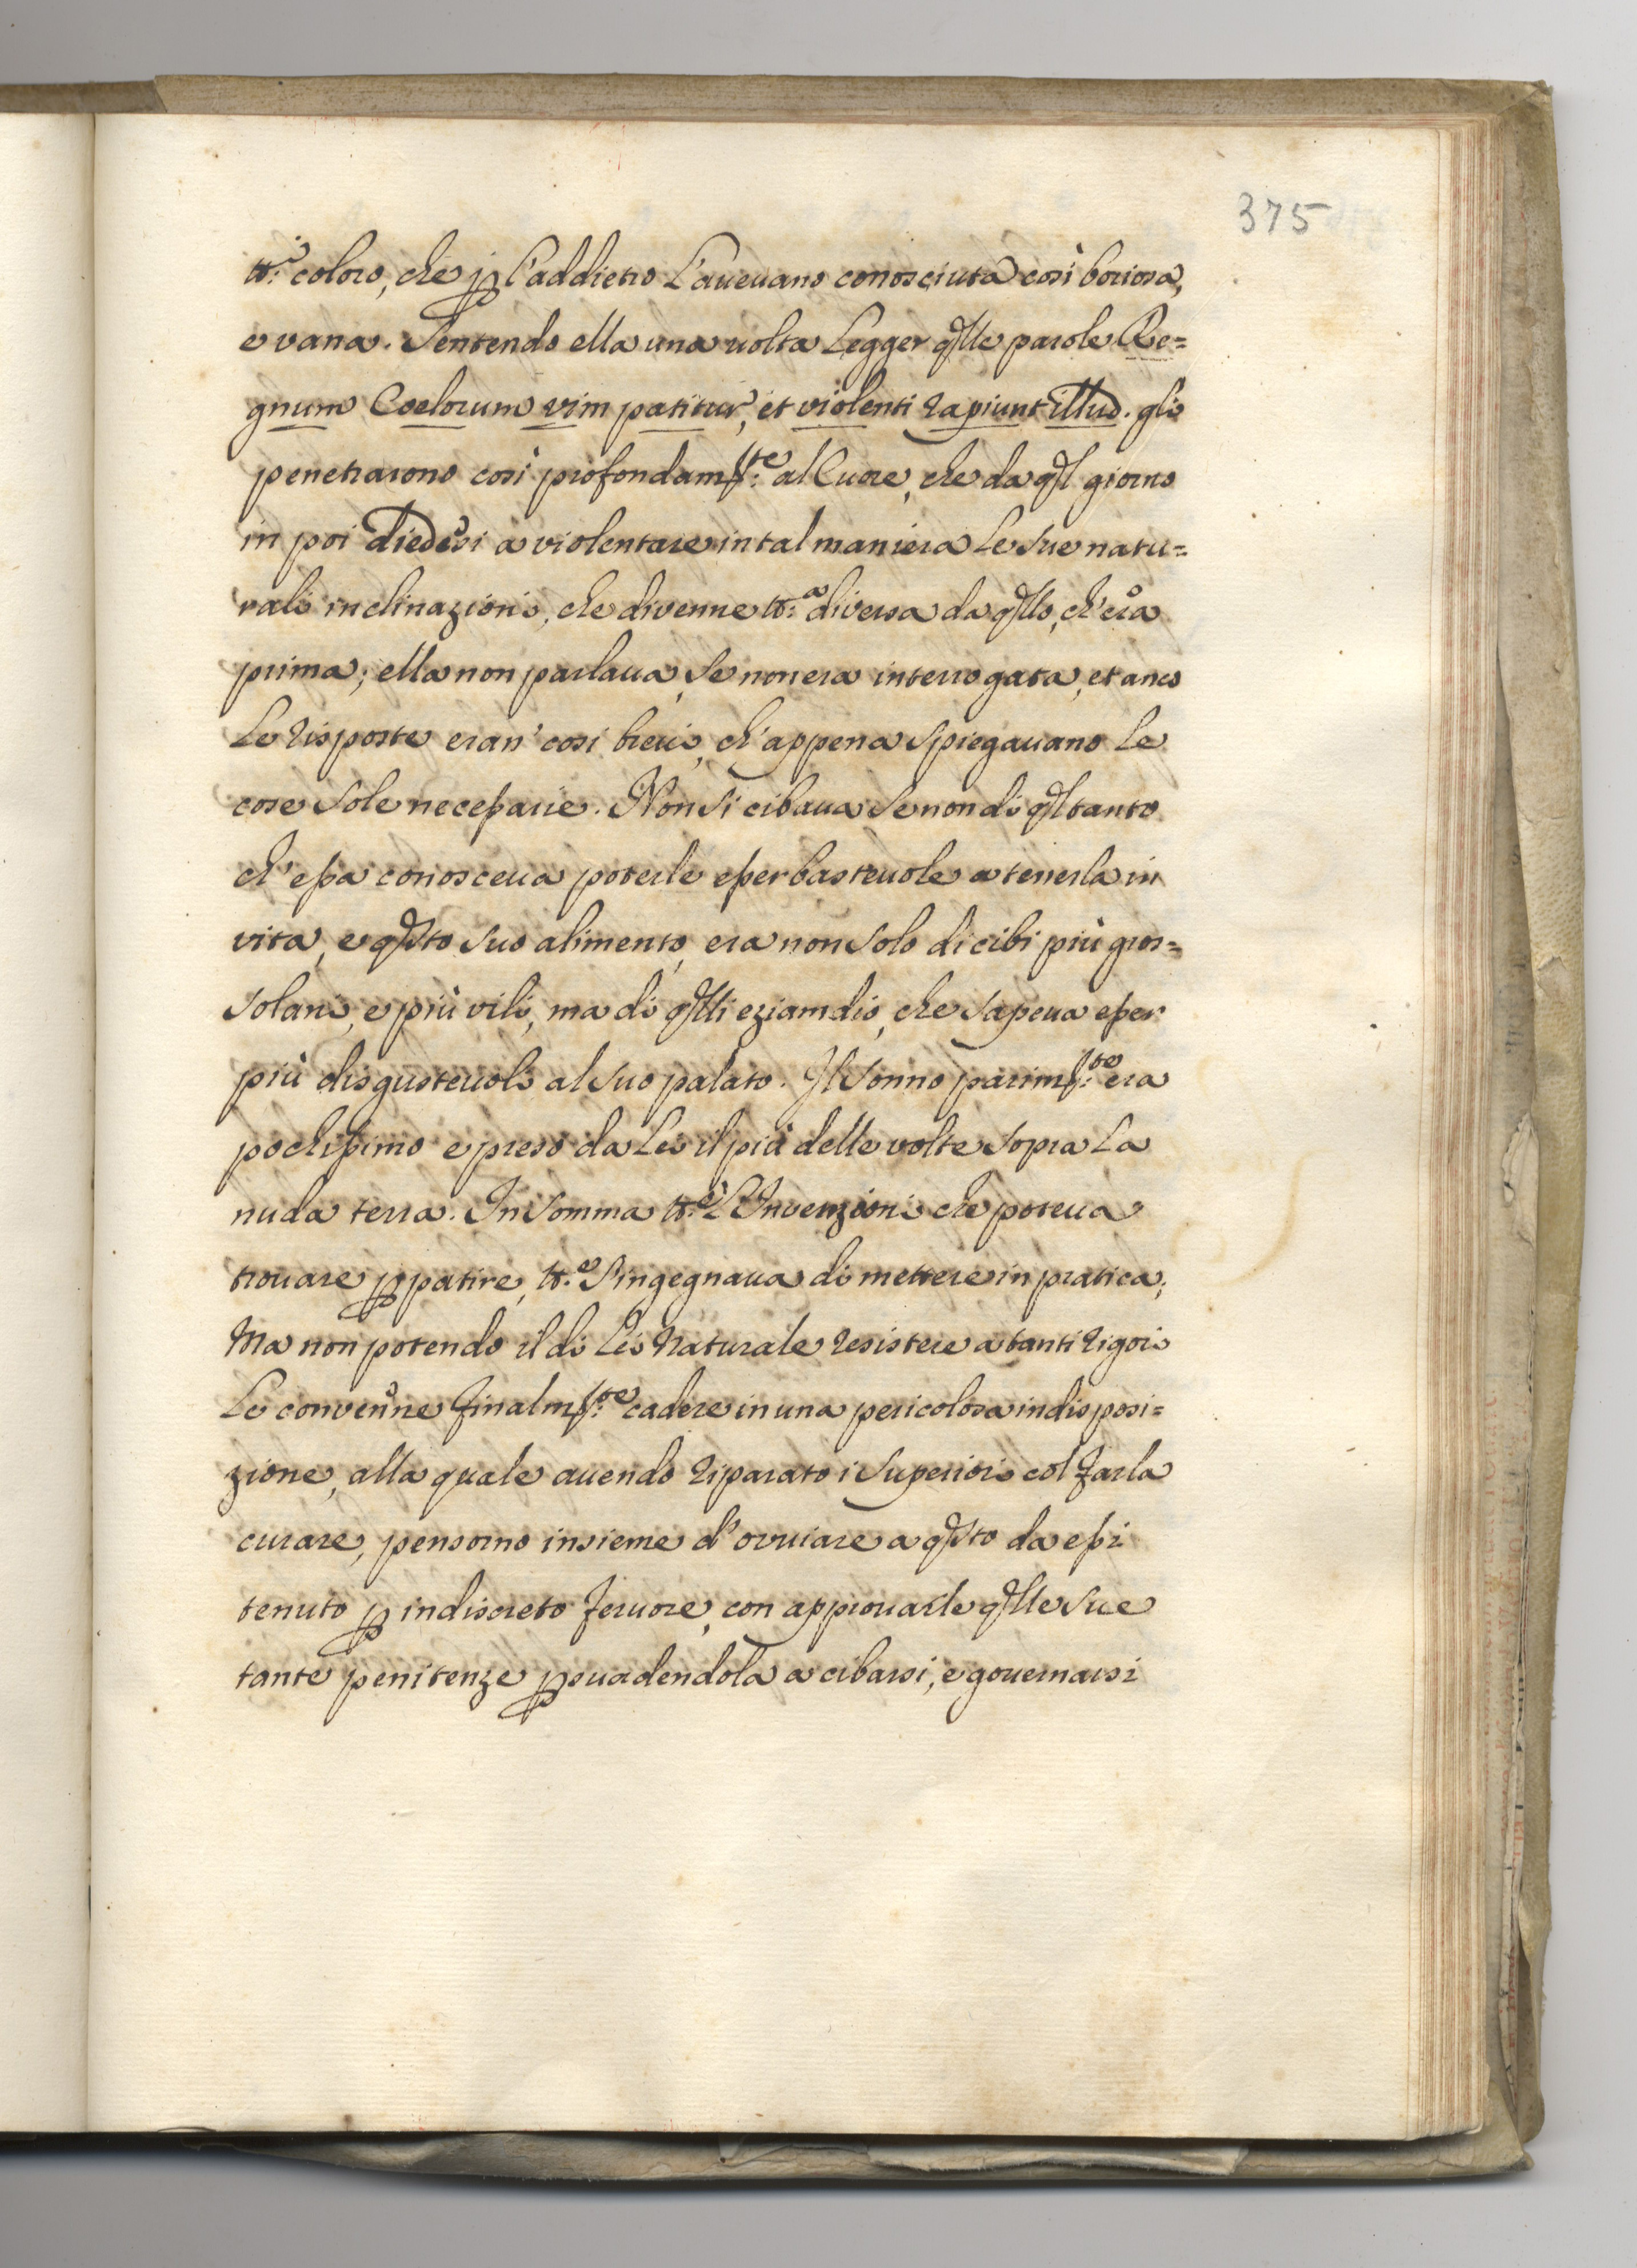 375
tt.i coloro, che p l'addietro L'aueuano conosciuta così boriosa,
e vana. Sentendo ella una uolta Legger qlle parole Re=
gnum Coelorum vim patitur, et violenti rapiunt illud. gli
penetrarono così profondam.te al Cuore, che da ql giorno
in poi diedesi a violentare in tal maniera Le sue natu=
rali inclinazioni, che divenne tt.a diversa da qllo, ch'era
prima; ella non parlaua, se non era interrogata, et anco
Le risposte eran' così breui, ch'appena spiegauano Le
cose sole necessarie. Non si cibaua se non di ql tanto
ch'essa conosceua poterle esser basteuole a tenerla in
vita, e qsto suo alimento, era non solo di cibi più gros=
solani, e più vili, ma di qlli eziamdio, che sapeua esser
più disgusteuoli al suo palato. Il sonno parim.te era
pochissimo e preso da Lei il più delle volte sopra La
nuda terra. In somma tt.e L'Invenzioni che poteua
trouare p patire, tt.e s'ingegnaua di mettere in pratica;
Ma non potendo il di Lei Naturale resistere a tanti rigori
Le convenne finalm.te cadere in una pericolosa indisposi=
zione, alla quale auendo riparato i Superiori col farla
curare, pensorno insieme d'ovuiare a qsto da essi
tenuto p indiscreto feruore, con approuarle qlle sue
tante penitenze psuadendola a cibarsi, e gouernarsi